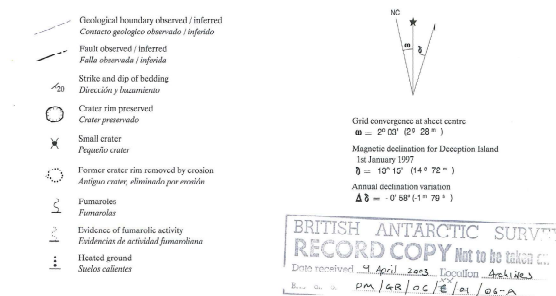 Geological boundary observed / inferred
Contacto geologico observado / inferido
Fault observed / inferred
Falla observada / inferida
20
Strike and dip of bedding
Dirección y buzamiento
Crater rim preserved
Crater preservado
Small crater
Pequeño crater
Former crater rim removed by erosion
Antiguo crater, eliminado por erosión
Fumaroles
Fumarolas
Evidence of fumarolic activity
Evidencias de actividad fumaroliana
Heated ground
Suelos calientes
NC
ɷ ૪
Grid convergence at sheet centre
ɷ = 2º 03' (2ᵍ 28 ᵐ)
Magnetic declination for Deception Island
1st January 1997
= 10º 15' (14 ᵍ 72 ᵐ)
Annual declination variation
= -0' 58" (-1 ᵐ 79 ˢ)
BRITISH ANTARCTIC SURVEY
RECORD COPY Not to be taken
Date received 9 April 2003 Location Archives
DM/GR/OC/E/01/06-A